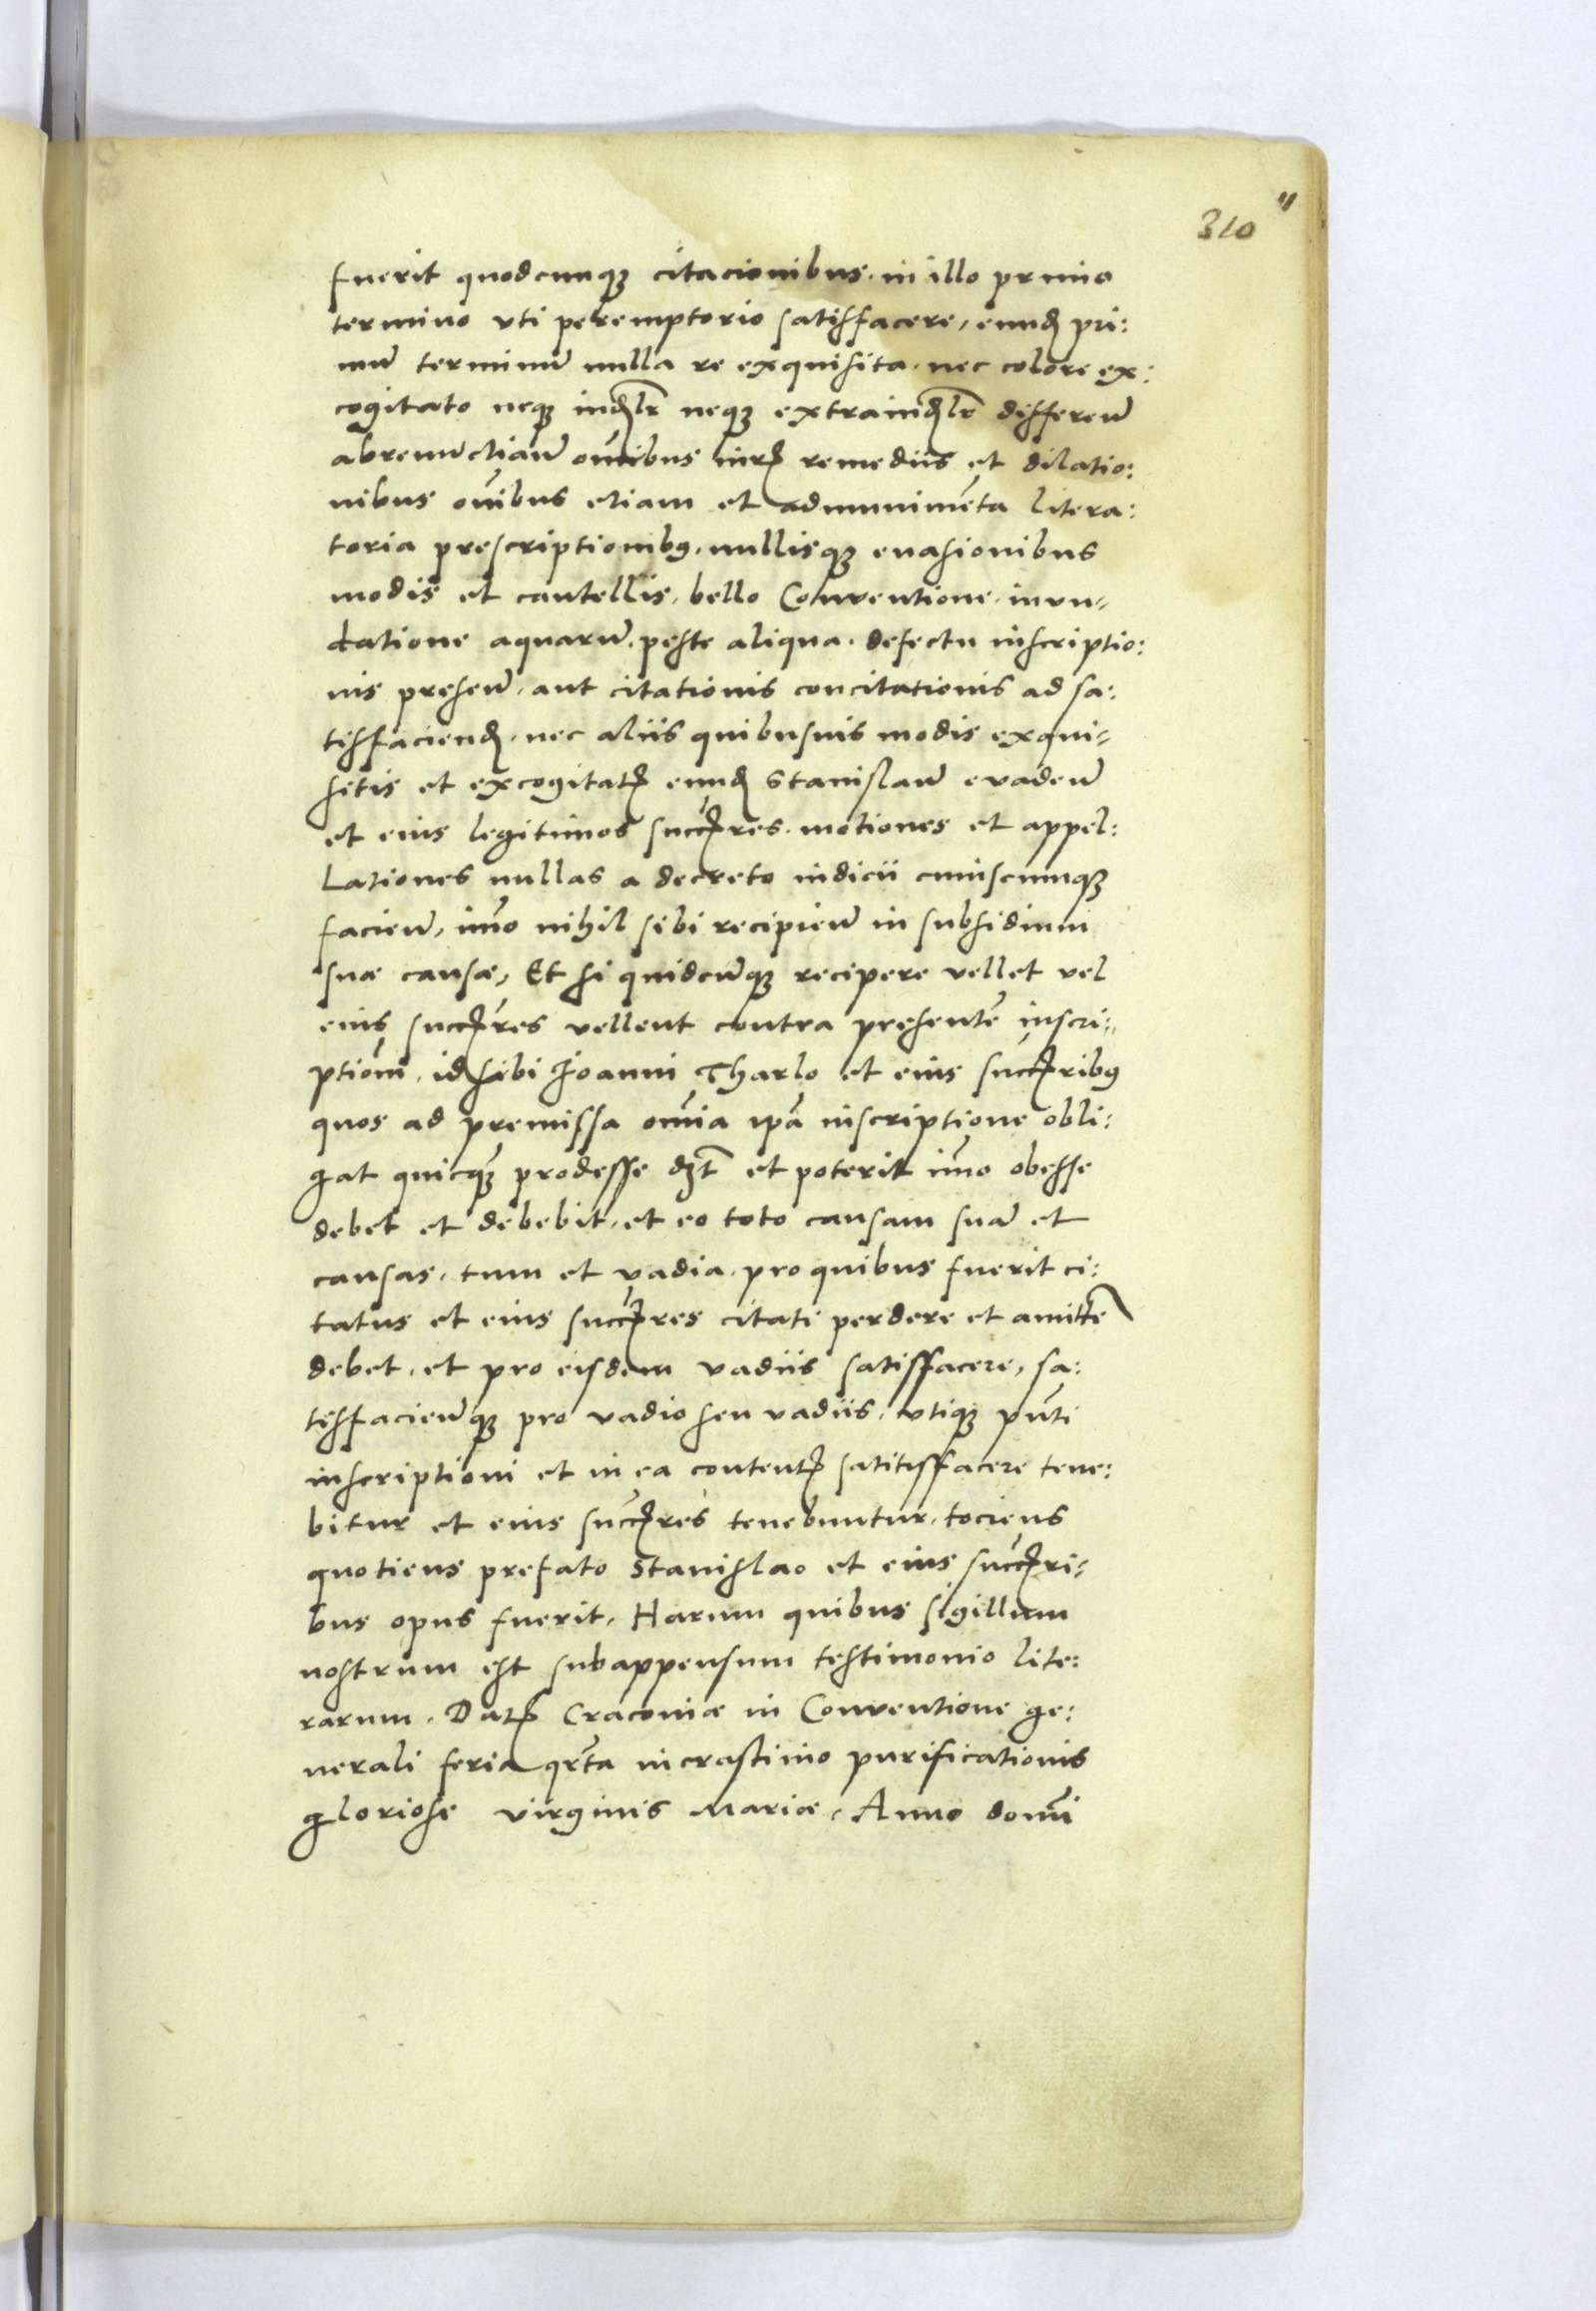 310
fuerit quodcunqꝫ citacionibus. in illo primo
termino vti peremptorio satisfacere, eundꝭ pri:
mū terminū nulla re exquisita. nec colore ex:
cogitato neqꝫ indꝭlr̄ neqꝫ extraindꝭlr̄ differeñ
abrenunctiañ om̄ibus iurꝭ remediis et dilatio:
nibus om̄ibus etiam et admunimēta litera:
toria prescriptionibꝰ. nullisqꝫ euasionibus
modis et cautellis. bello Conuentione. inun-
datione aquarū. peste aliqua. defectu inscriptio:
nis preseñ. aut citationis concitationis ad sa:
tisfaciendꝭ. nec aliis quibusuis modis exqui-
sitis et excogitatꝭ eundꝭ Stanislaū euadeñ
et eius legitimos succꝭres. motiones et appel:
lationes nullas a decreto iudicii cuiuscunqꝫ
facieñ, im̄o nihil sibi recipieñ in subsidium
suæ causæ, Et si quidcūqꝫ recipere vellet vel
eius succꝭres vellent contra presentē inscri:
ptiom̄. id sibi Joanni Tharlo et eius succꝭribꝰ
quos ad premissa om̄ia ip̄a inscriptione obli:
gat quicqꝫ prodesse dꝫt et poterit im̄o obesse
debet et debebit. et eo toto causam suā et
causas. tum et vadia. pro quibus fuerit ci:
tatus et eius succꝭres citati perdere et amittē
debet. et pro eisdem vadiis satisfacere, sa:
tisfacieñqꝫ pro vadio seu vadiis. vtiqꝫ pñti
inscriptioni et in ea contentꝭ satitisfacere tene:
bitur et eius succꝭres tenebuntur. tociens
quotiens prefato Stanislao et eius succꝭri-
bus opus fuerit. Harum quibus sigillum
nostrum est subappensum testimonio lite:
rarum. Datꝭ Cracouiæ in Conuentione ge:
nerali feria qr̄ta in crastino purificationis
gloriose virginis Mariæ. Anno domī